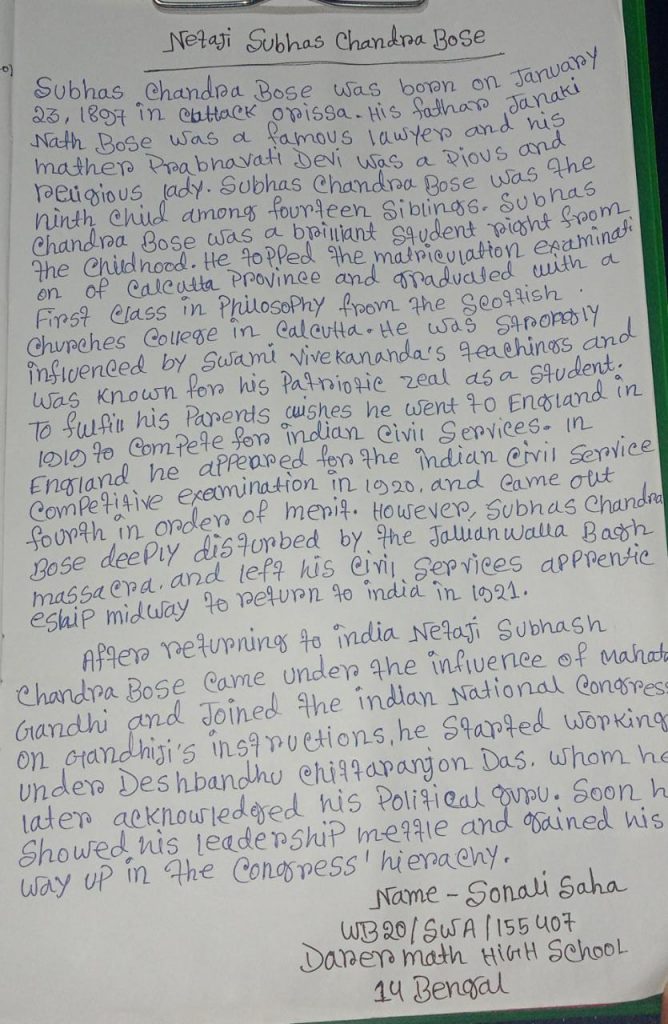 Netaji Subhas Chandra Bose
Subhas Chandra Bose was born on January
23, 1897 in Cuttack Orissa. His fathar Janaki
Nath Bose was a famous lawyer and his
mather Prabhavati Devi was a Pious and
religious lady. Subhas Chandra Bose was the
ninth child among fourteen Siblings. Subhas
Chandra Bose was a brilliant Student right from
the Childhood. He topped the matriculation examinati
on of Calcutta Province and graduated with a
First Class in Philosophy from the Scottish
Churches College in Calcutta. He was Strongly
influenced by Swami Vivekananda's teachings and
was known for his Patriotic zeal as a Student.
To fulfill his Parents wishes he went to England in
1919 to Compete for indian Civil Services. in
England he appeared for the indian Civil Service
Competitive examination in 1920, and Came out
fourth in order of merit. However, Subhas Chandra
Bose deeply disturbed by the Jallianwalla Bagh
massacra, and left his Civil Services apprentic
eship midway to return to india in 1921.
After returning to india Netaji Subhash
Chandra Bose Came under the influence of Mahat
Gandhi and Joined the indian National Congress
on Gandhiji's instructions, he Started Working
under Deshbandhu Chittaranjon Das, whom he
later acknowledged his Political guru. Soon h
Showed his leadership mettle and gained his
way up in the Congress' hierachy.
Name - Sonali Saha
WB20/SWA/155407
Darermath HIGH SCHOOL
14 Bengal